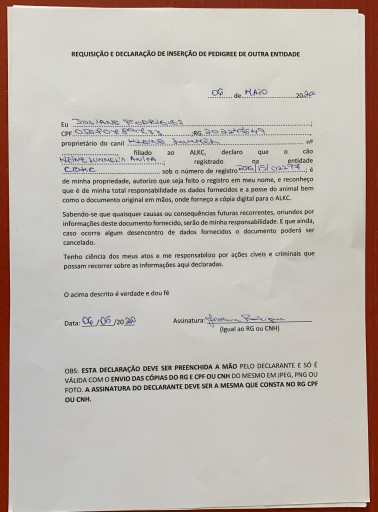 REQUISIÇÃO E DECLARAÇÃO DE INSERÇÃO DE PEDIGREE DE OUTRA ENTIDADE
06 de MAIO 2020
Eu JOSIANE RODRIGUES ;
CPF ;RG ;
proprietário do canil nº
filiado ao ALKC, declaro que o cão
registrado na entidade
sob o número de registro ; é
de minha propriedade, autorizo que seja feito o registro em meu nome, e reconheço
que é de minha total responsabilidade os dados fornecidos e a posse do animal bem
como o documento original em mãos, onde forneço a cópia digital para o ALKC.
Sabendo-se que quaisquer causas ou consequências futuras recorrentes, oriundos por
informações deste documento fornecido, serão de minha responsabilidade. E que ainda,
caso ocorra algum desencontro de dados fornecidos o documento poderá ser
cancelado.
Tenho ciência dos meus atos e me responsabilizo por ações cíveis e criminais que
possam recorrer sobre as informações aqui declaradas.
O acima descrito é verdade e dou fé
Data: 06/05/2020 Assinatura:
(Igual ao RG ou CNH)
OBS: ESTA DECLARAÇÃO DEVE SER PREENCHIDA A MÃO PELO DECLARANTE E SÓ É
VÁLIDA COM O ENVIO DAS CÓPIAS DO RG E CPF OU CNH DO MESMO EM JPEG, PNG OU
FOTO. A ASSINATURA DO DECLARANTE DEVE SER A MESMA QUE CONSTA NO RG CPF
OU CNH.